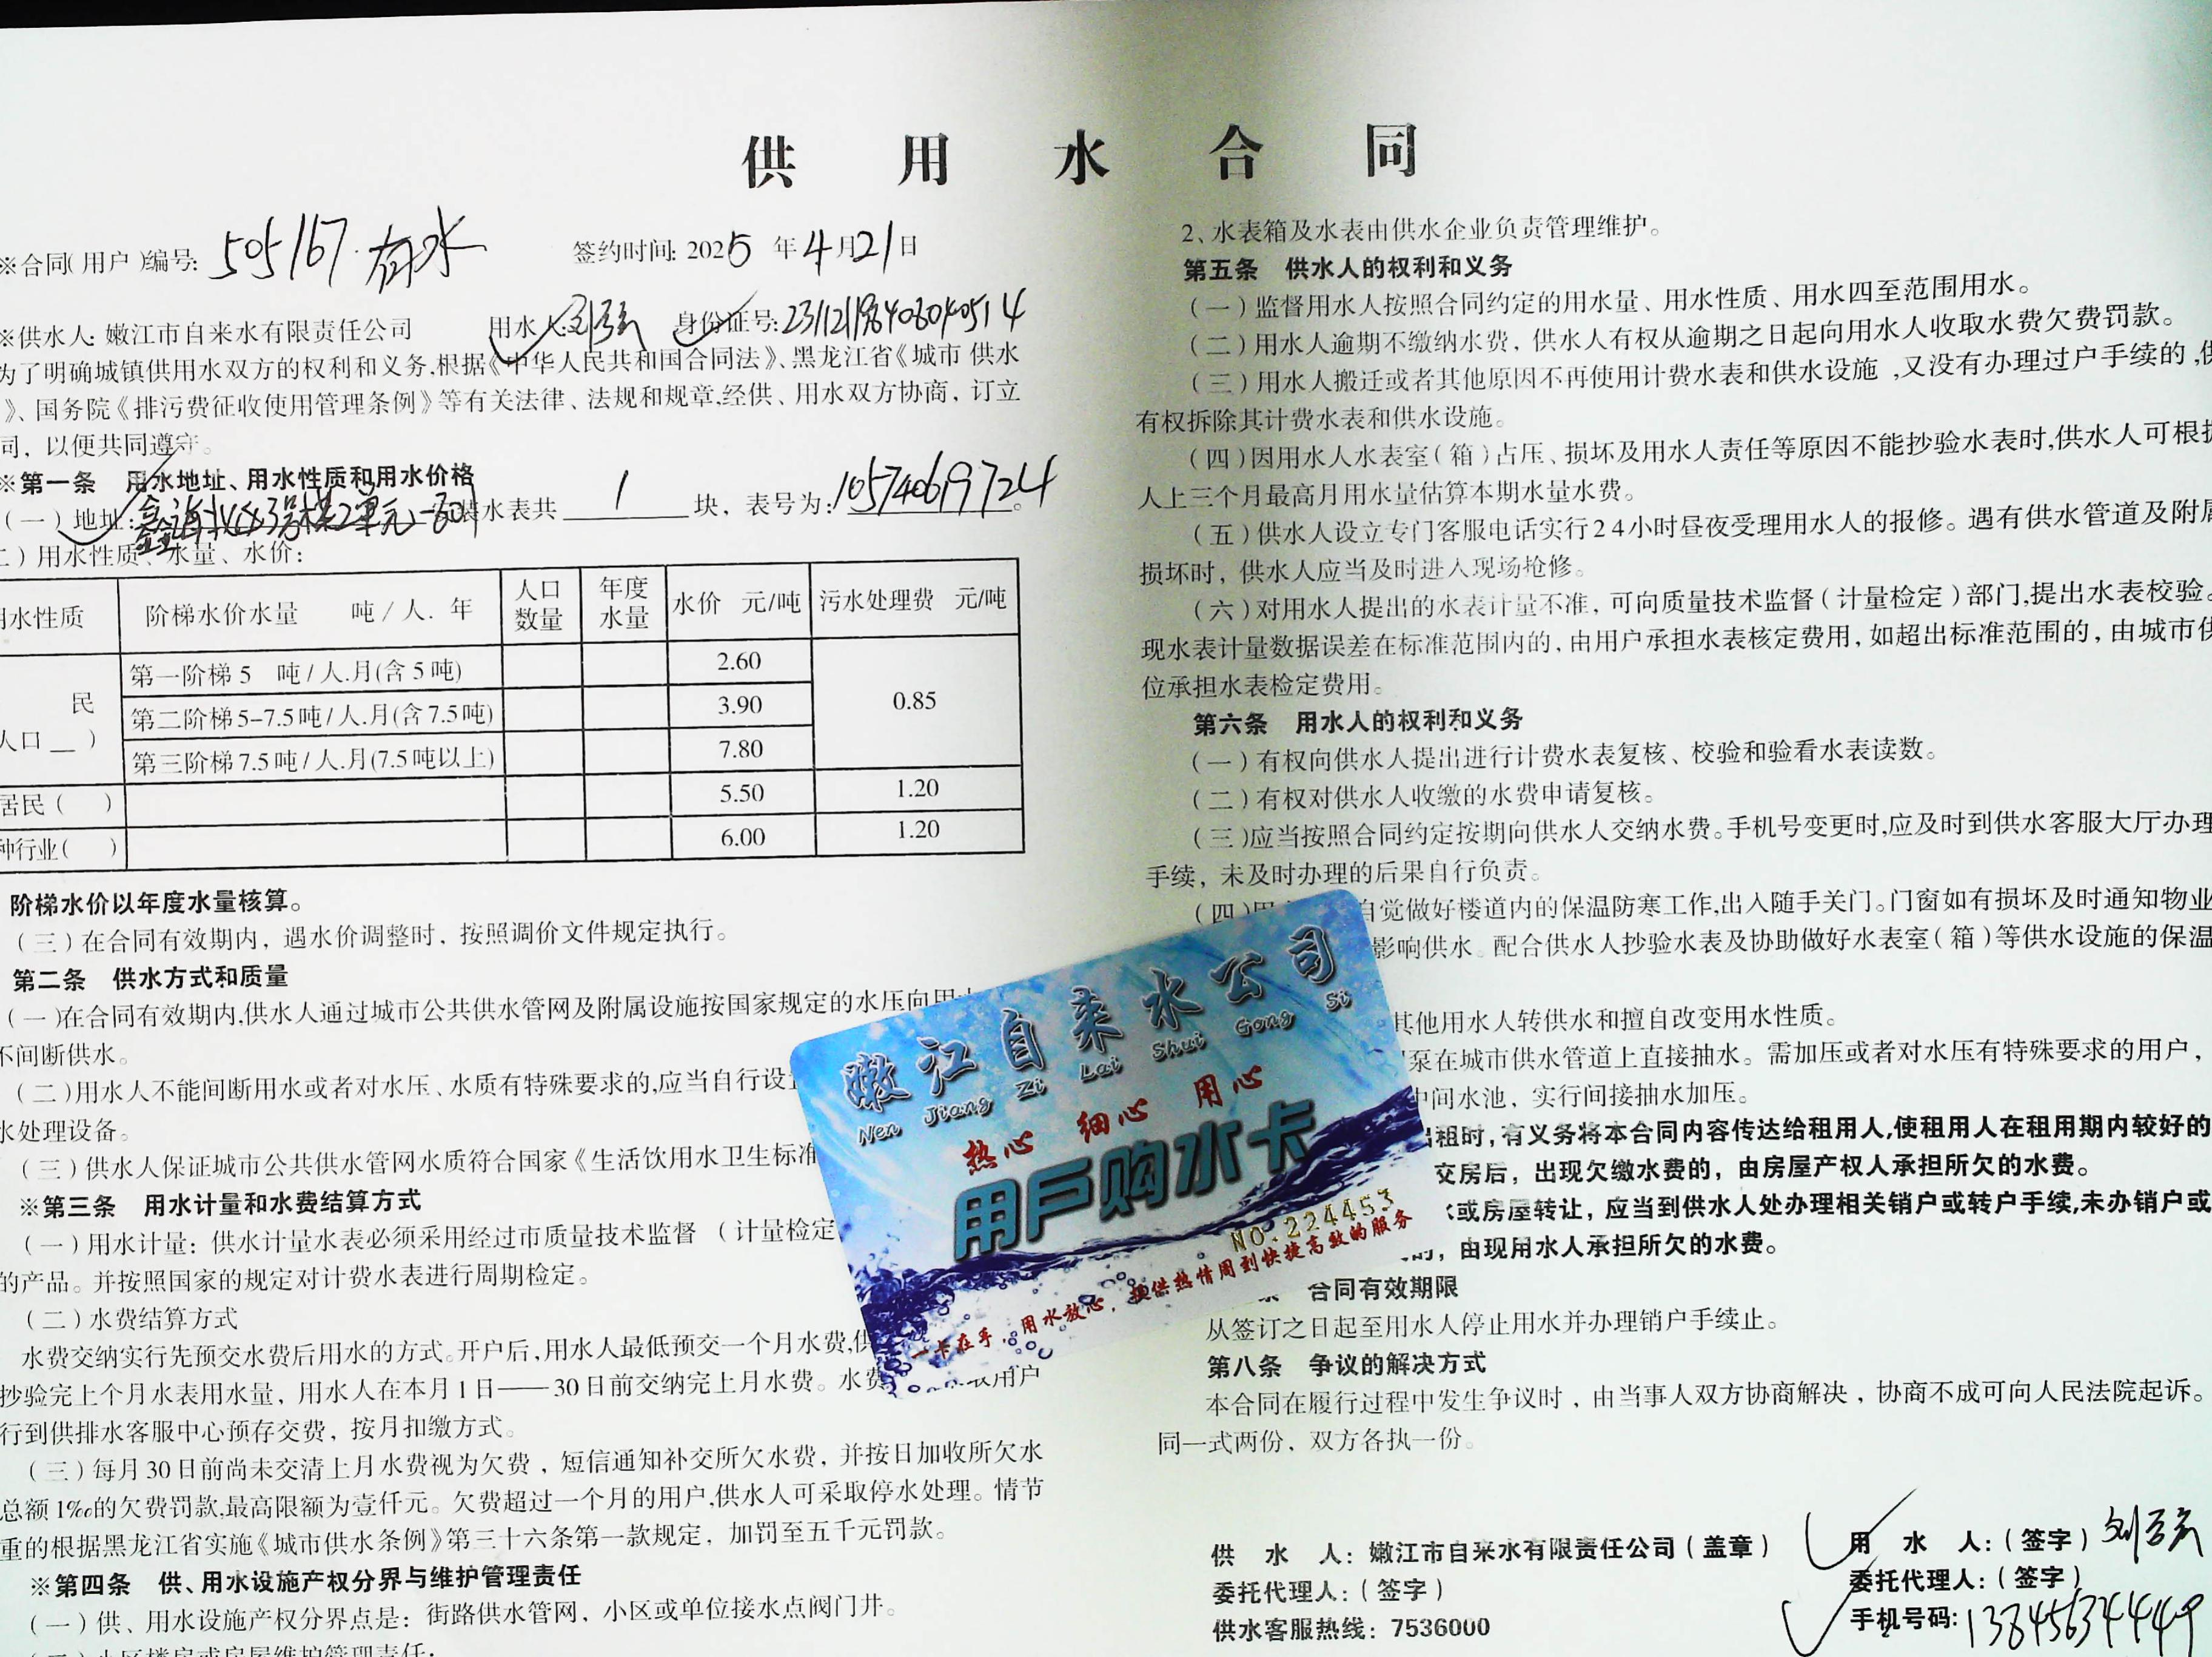 供用水合同
※合同(用户)编号: 505167. 有水 签约时间: 2025 年 4 月 21 日
※供水人: 嫩江市自来水有限责任公司 用水人: 身份证号:
为了明确城镇供用水双方的权利和义务,根据《中华人民共和国合同法》、黑龙江省《城市 供水
》、国务院《排污费征收使用管理条例》等有关法律、法规和规章,经供、用水双方协商,订立
同,以便共同遵守。
※第一条 用水地址、用水性质和用水价格
(一)地址: 3号楼2单元 装水表共 1 块,表号为: 10574069724。
二)用水性质、水量、水价:
用水性质 阶梯水价水量 吨/人.年 人口数量 年度水量 水价 元/吨 污水处理费 元/吨
民 第一阶梯5 吨/人.月(含5吨) 2.60 0.85
人口__) 第二阶梯5-7.5吨/人.月(含7.5吨) 3.90
第三阶梯7.5吨/人.月(7.5吨以上) 7.80
居民( ) 5.50 1.20
种行业( ) 6.00 1.20
阶梯水价以年度水量核算。
(三)在合同有效期内,遇水价调整时,按照调价文件规定执行。
第二条 供水方式和质量
(一)在合同有效期内,供水人通过城市公共供水管网及附属设施按国家规定的水压向用水
不间断供水。
(二)用水人不能间断用水或者对水压、水质有特殊要求的,应当自行设
水处理设备。
(三)供水人保证城市公共供水管网水质符合国家《生活饮用水卫生标准
※第三条 用水计量和水费结算方式
(一)用水计量:供水计量水表必须采用经过市质量技术监督 (计量检定
的产品。并按照国家的规定对计费水表进行周期检定。
(二)水费结算方式
水费交纳实行先预交水费后用水的方式。开户后,用水人最低预交一个月水费,供
抄验完上个月水表用水量,用水人在本月1日——30日前交纳完上月水费。水费 用户
行到供排水客服中心预存交费,按月扣缴方式。
(三)每月30日前尚未交清上月水费视为欠费,短信通知补交所欠水费,并按日加收所欠水
总额1‰的欠费罚款,最高限额为壹仟元。欠费超过一个月的用户,供水人可采取停水处理。情节
重的根据黑龙江省实施《城市供水条例》第三十六条第一款规定,加罚至五千元罚款。
※第四条 供、用水设施产权分界与维护管理责任
(一)供、用水设施产权分界点是:街路供水管网,小区或单位接水点阀门井。
(二)小区楼房或房屋维护管理责任:
2、水表箱及水表由供水企业负责管理维护。
第五条 供水人的权利和义务
(一)监督用水人按照合同约定的用水量、用水性质、用水四至范围用水。
(二)用水人逾期不缴纳水费,供水人有权从逾期之日起向用水人收取水费欠费罚款。
(三)用水人搬迁或者其他原因不再使用计费水表和供水设施,又没有办理过户手续的,供
有权拆除其计费水表和供水设施。
(四)因用水人水表室(箱)占压、损坏及用水人责任等原因不能抄验水表时,供水人可根据
人上三个月最高月用水量估算本期水量水费。
(五)供水人设立专门客服电话实行24小时昼夜受理用水人的报修。遇有供水管道及附属
损坏时,供水人应当及时进入现场抢修。
(六)对用水人提出的水表计量不准,可向质量技术监督(计量检定)部门,提出水表校验。
现水表计量数据误差在标准范围内的,由用户承担水表核定费用,如超出标准范围的,由城市供
位承担水表检定费用。
第六条 用水人的权利和义务
(一)有权向供水人提出进行计费水表复核、校验和验看水表读数。
(二)有权对供水人收缴的水费申请复核。
(三)应当按照合同约定按期向供水人交纳水费。手机号变更时,应及时到供水客服大厅办理
手续,未及时办理的后果自行负责。
(四) 自觉做好楼道内的保温防寒工作,出入随手关门。门窗如有损坏及时通知物业
影响供水。配合供水人抄验水表及协助做好水表室(箱)等供水设施的保温
其他用水人转供水和擅自改变用水性质。
泵在城市供水管道上直接抽水。需加压或者对水压有特殊要求的用户,
中间水池,实行间接抽水加压。
出租时,有义务将本合同内容传达给租用人,使租用人在租用期内较好的
交房后,出现欠缴水费的,由房屋产权人承担所欠的水费。
或房屋转让,应当到供水人处办理相关销户或转户手续,未办销户或
,由现用水人承担所欠的水费。
合同有效期限
从签订之日起至用水人停止用水并办理销户手续止。
第八条 争议的解决方式
本合同在履行过程中发生争议时,由当事人双方协商解决,协商不成可向人民法院起诉。
同一式两份,双方各执一份。
供 水 人:嫩江市自来水有限责任公司(盖章)
委托代理人:(签字)
供水客服热线:7536000
用 水 人:(签字)
委托代理人:(签字)
手机号码: 13845634449
嫩江自来水公司
Nen Jiang Zi Lai Shui Gong Si
热心 细心 用心
用戶购水卡
NO:224453
一卡在手,用水放心,提供热情周到快捷高效的服务